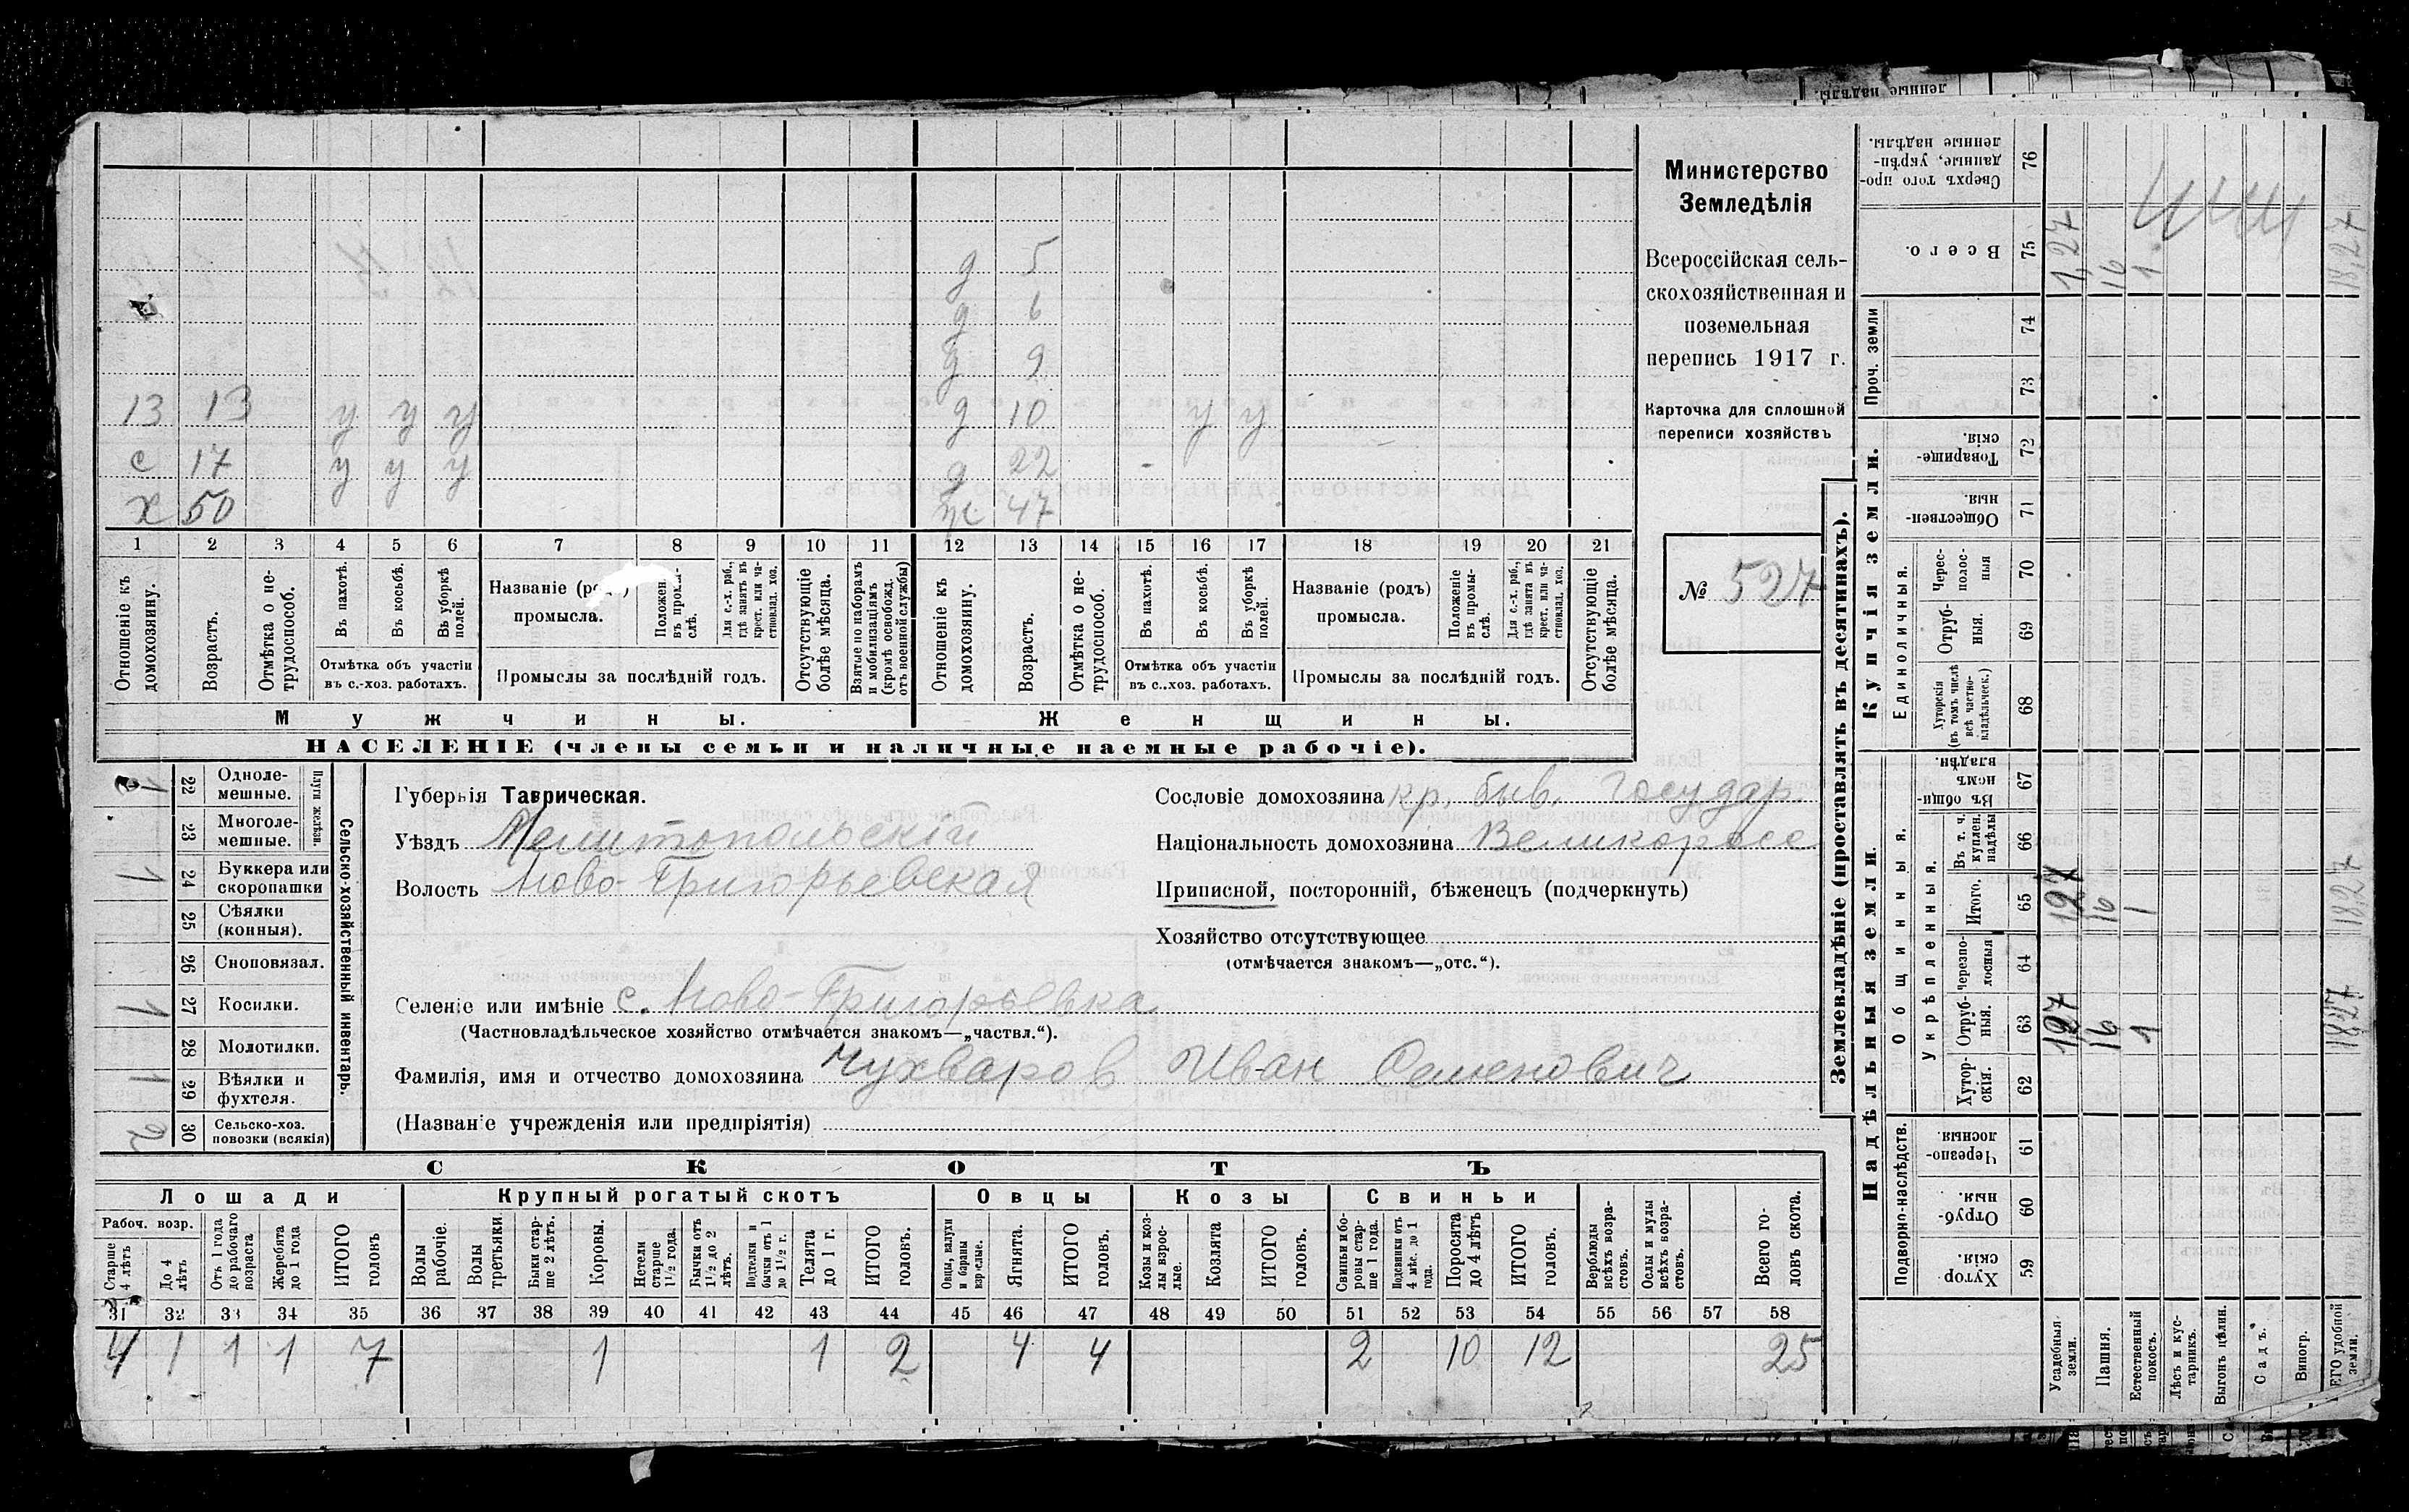 д 5
д 6
д 9
13 13 у у у д 10 у у
с 17 у у у д 22
х 50 ж 47
1 2 3 4 5 6 7 8 9 10 11 12 13 14 15 16 17 18 19 20 21
Отношеніе къ домохозяину.
Возрастъ.
Отмѣтка о нетрудоспособ.
Въ пахотѣ.
Въ косьбѣ.
Въ уборкѣ полей.
Отмѣтка объ участіи
въ с.-хоз. работахъ.
Названіе
промысла.
Положен. въ промыслѣ.
Для с.-х. раб., гдѣ занятъ въ крест. или частновлад. хоз.
Промыслы за послѣдній годъ.
Отсутствующіе болѣе мѣсяца.
Взятые по наборамъ и мобилизаціямъ (кромѣ освобожд. отъ военной службы)
Отношеніе къ домохозяину.
Возрастъ.
Отмѣтка о нетрудоспособ.
Въ пахотѣ.
Въ косьбѣ.
Въ уборкѣ полей.
Отмѣтка объ участіи
въ с.-хоз. работахъ.
Названіе (родъ)
промысла.
Положеніе въ промыслѣ.
Для с.-х. раб., гдѣ занята въ крест. или частновлад. хоз.
Промыслы за послѣдній годъ.
Отсутствующіе болѣе мѣсяца.
Мужчины. Женщины.
НАСЕЛЕНІЕ (члены семьи и наличные наемные рабочіе).
Министерство
Земледѣлія
Всероссійская сель-
скохозяйственная и
поземельная
перепись 1917 г.
Карточка для сплошной
переписи хозяйствъ
№ 527
Сельско-хозяйственный инвентарь.
Плуги желѣзн.
22 Одноле-
мешные. 1
23 Многоле-
мешные.
24 Буккера или
скоропашки 1
25 Сѣялки
(конныя).
26 Сноповязал.
27 Косилки. 1
28 Молотилки.
29 Вѣялки и
фухтеля. 1
30 Сельско-хоз.
повозки (всякія) 2
Губернія Таврическая.
Уѣздъ Мелитопольскій
Волость Ново-Григорьевская
Сословіе домохозяина кр. быв. Государ.
Національность домохозяина Великоросс
Приписной, посторонній, бѣженецъ (подчеркнуть)
Хозяйство отсутствующее
(отмѣчается знакомъ—„отс.“).
Селеніе или имѣніе с. Ново-Григорьевка
(Частновладѣльческое хозяйство отмѣчается знакомъ—„частвл.“).
Фамилія, имя и отчество домохозяина Чухваров Иван Семенович
(Названіе учрежденія или предпріятія)
СКОТЪ
Лошади Крупный рогатый скотъ Овцы Козы Свиньи
Рабоч. возр.
Старше 4 лѣтъ
До 4 лѣтъ
Отъ 1 года до рабочаго возраста
Жеребята до 1 года
ИТОГО головъ
Волы рабочіе.
Волы третьяки.
Быки старше 2 лѣтъ.
Коровы.
Нетели старше 1½ года.
Бычки отъ 1½ до 2 лѣтъ.
Подтелки и бычки отъ 1 до 1½ г.
Телята до 1 г.
ИТОГО головъ.
Овцы, валухи и бараны взрослые.
Ягнята.
ИТОГО головъ.
Козы и козлы взрослые.
Козлята
ИТОГО головъ.
Свиньи и боровы старше 1 года.
Подсвинки отъ 4 мѣс. до 1 года.
Поросята до 4 лѣтъ
ИТОГО головъ.
Верблюды всѣхъ возрастовъ.
Ослы и мулы всѣхъ возрастовъ.
Всего головъ скота.
31 32 33 34 35 36 37 38 39 40 41 42 43 44 45 46 47 48 49 50 51 52 53 54 55 56 57 58
4 1 1 1 7 1 1 2 4 4 2 10 12 25
Землевладѣніе (проставлять въ десятинахъ).
Купчія земли.
Надѣльныя земли.
Сверхъ того проданные, укрѣпленные надѣлы. 76
Всего. 75 1,27 16 1 18,27
Проч. земли
74
73
Товарищескія. 72
Общественныя. 71
Единоличныя.
Чересполосныя 70
Отрубныя. 69
Хуторскія (въ томъ числѣ всѣ частновладѣльческ.) 68
Общинныя.
Въ общинномъ владѣн. 67
Укрѣпленныя.
Въ т. ч. куплен. надѣлы 66
Итого. 65 1,27 16 1 18,27
Черезполосныя 64
Отрубныя. 63 1,27 16 1 18,27
Хуторскія. 62
Подворно-наслѣдств.
Черезполосныя. 61
Отрубныя. 60
Хуторскія. 59
Усадебныя земли.
Пашня.
Естественный покосъ.
Лѣсъ и кустарникъ.
Выгонъ цѣлин.
Садъ.
Виногр.
ЕГО удобной земли.